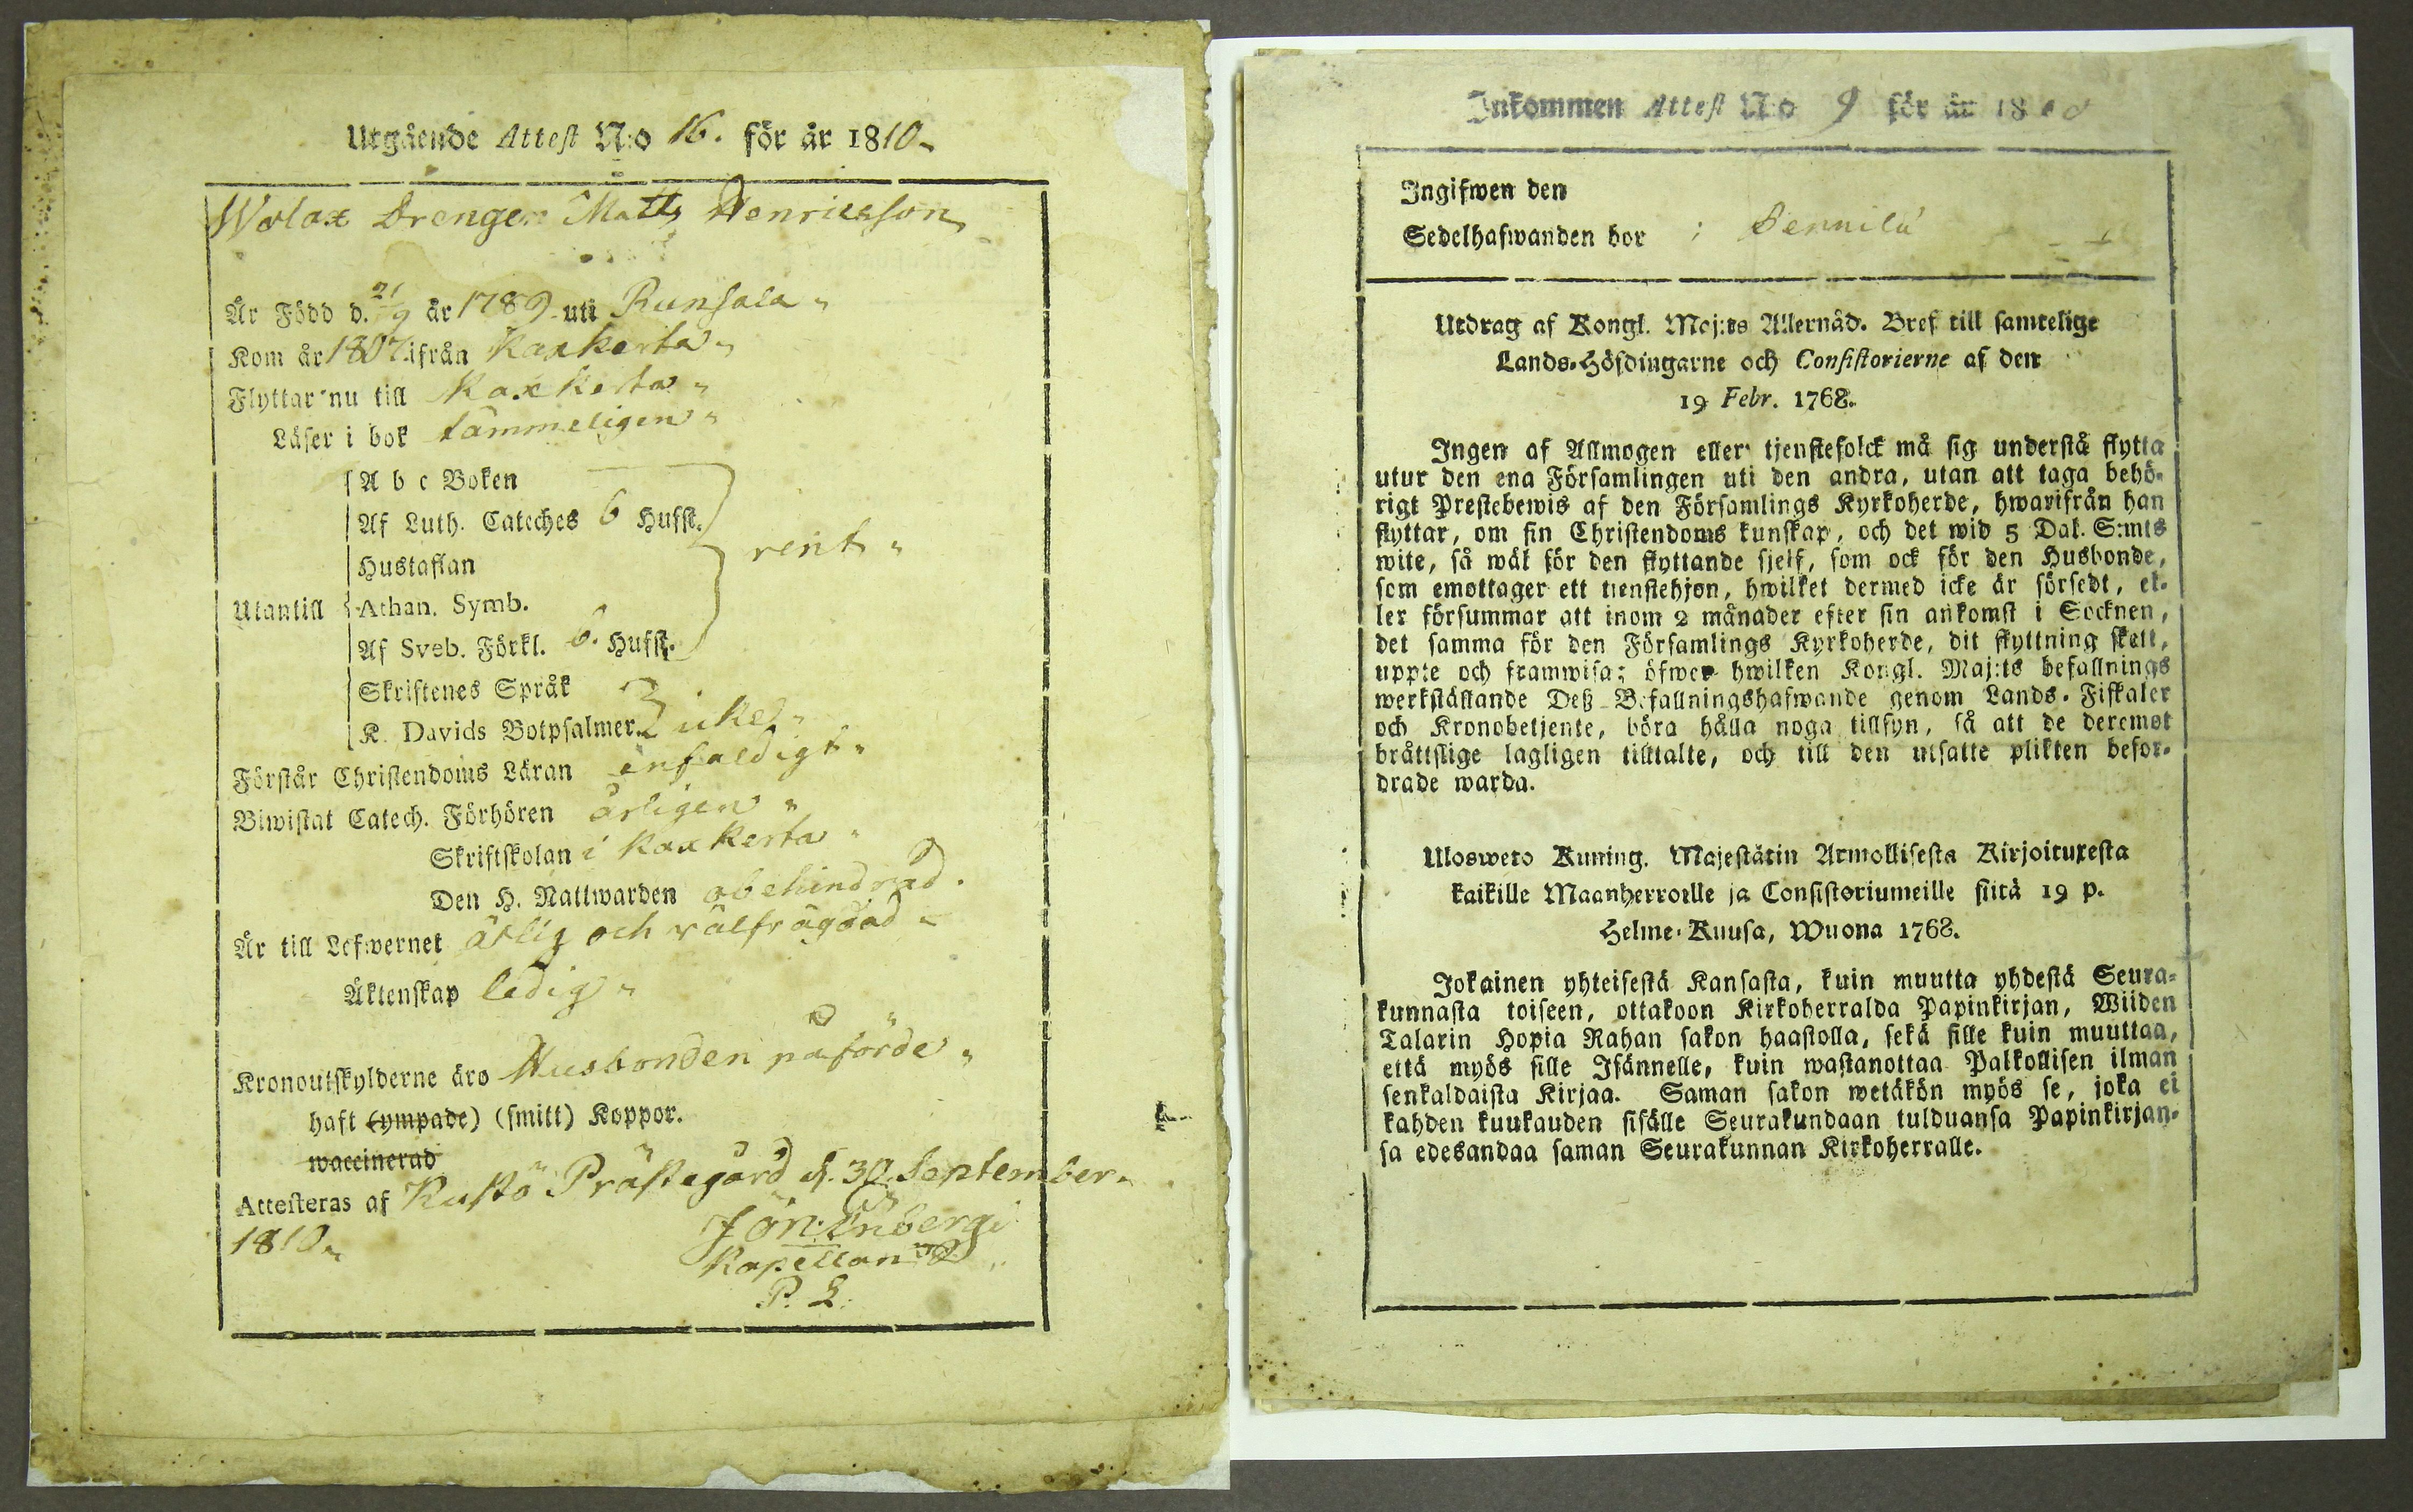 Utgående Attest N:o 16. för år 1810.
Wolax Drengen Matts Henricsson
Är Född d. 21/9 år 1789 uti Runsala
Kom år 1807 ifrån Kaxkerta
Flyttar nu till Kaxkerta
Läser i bok tämmeligen
A b c Boken
Af Luth. Cateches 6 Hufst.
Hustaflan
rent
Utantill Athan. Symb.
Af Sveb. Förkl. 6. Hufst.
Skriftenes Språk
K. Davids Botpsalmer icke
Förstår Christendoms Läran enfaldigt
Biwistat Catech. Förhören årligen
Skriftskolan i Kaxkerta
Den H. Nattwarden obehindrad.
Är till Lefwernet ärlig och välfrägdad
Äktenskap ledig
Kronoutskylderne äro Husbonden påförde
haft (ympade) (smitt) Koppor.
waccinerad
Attesteras af Kustö Prästegård d. 30 September
1810
Kapellan
P. L.
Inkommen Attest N:o 9 för år 18
Ingifwen den
Sedelhafwanden bor i
Utdrag af Kongl. Maj:ts Allernåd. Bref till samtelige
Lands-Höfdingarne och Consistorierne af den
19 Febr. 1768.
Ingen af Allmogen eller tjenstefolck må sig understå flytta
utur den ena Församlingen uti den andra, utan att taga behö-
rigt Prestebewis af den Församlings Kyrkoherde, hwarifrån han
flyttar, om sin Christendoms kunskap, och det wid 5 Dal. S:mts
wite, så wäl för den flyttande sjelf, som ock för den Husbonde,
som emottager ett tienstehjon, hwilket dermed icke är försedt, el-
ler försummar att inom 2 månader efter sin ankomst i Socknen,
det samma för den Församlings Kyrkoherde, dit flyttning skett,
uppte och framwisa; öfwer hwilken Kongl. Maj:ts befallnings
werkställande Deß Befallningshafwande genom Lands-Fiskaler
och Kronobetjente, böra hålla noga tillsyn, så att de deremot
bråttslige lagligen tilltalte, och till den utsatte plikten befor-
drade warda.
Uloswero Kuning. Majestätin Armollisesta Kirjoituxesta
kaikille Maanherroille ja Consistoriumeille siitä 19 p.
Helme-Kuusa, Wuona 1768.
Jokainen yhteisestä Kansasta, kuin muutta yhdestä Seura-
kunnasta toiseen, ottakoon Kirkoherralda Papinkirjan, Wiiden
Talarin Hopia Rahan sakon haastolla, sekä sille kuin muuttaa,
että myös sille Isännelle, kuin wastanottaa Palkollisen ilman
senkaldaista Kirjaa. Saman sakon wetäkön myös se, joka ei
kahden kuukauden sisälle Seurakundaan tulduansa Papinkirjan-
sa edesandaa saman Seurakunnan Kirkoherralle.